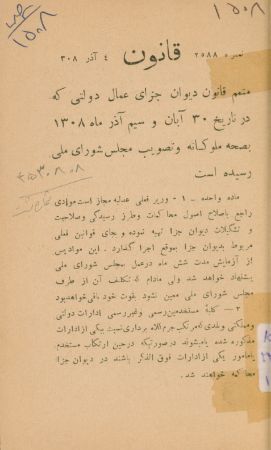 ۱۵۰۸
۱۵۰۸
نمره ۲۵۸۸ قانون ٤ آذر ۳۰۸
متمم قانون دیوان جزای عمال دولتی که
در تاریخ ۳۰ آبان و سیم آذر ماه ۱۳۰۸
بصحه ملوکانه وتصویب مجلس شورای ملی
رسیده است
ماده واحده ـ ۱ ـ وزیر فعلی عدلیه مجاز است موادی
راجع باصلاح اصول محاکمات وطرز رسیدگی وصلاحیت
و تشکیلات دیوان جزا تهیه نموده و بجای قوانین فعلی
مربوط بدیوان جزا بموقع اجرا گذارد . این موادپس
از آزمایش مدت شش ماه درعمل مجلس شورای ملی
پیشنهاد خواهد شد ولی مادام که تکلیف آن از طرف
مجلس شورای ملی معین نشود بقوت خود باقی خواهدبود
۲ ـ کلیهٔ مستخدمین رسمی وغیر رسمی ادارات دولتی
ومملکتی وبلدی که مرتکب جرم کلاه برداری نسبت بیکی از ادارات
مذکوره شده یا میشوند درصورتیکه درحین ارتکاب مستخدم
یامامور یکی از ادارات فوق الذکر باشند در دیوان جزا
محاکمه خواهند شد .